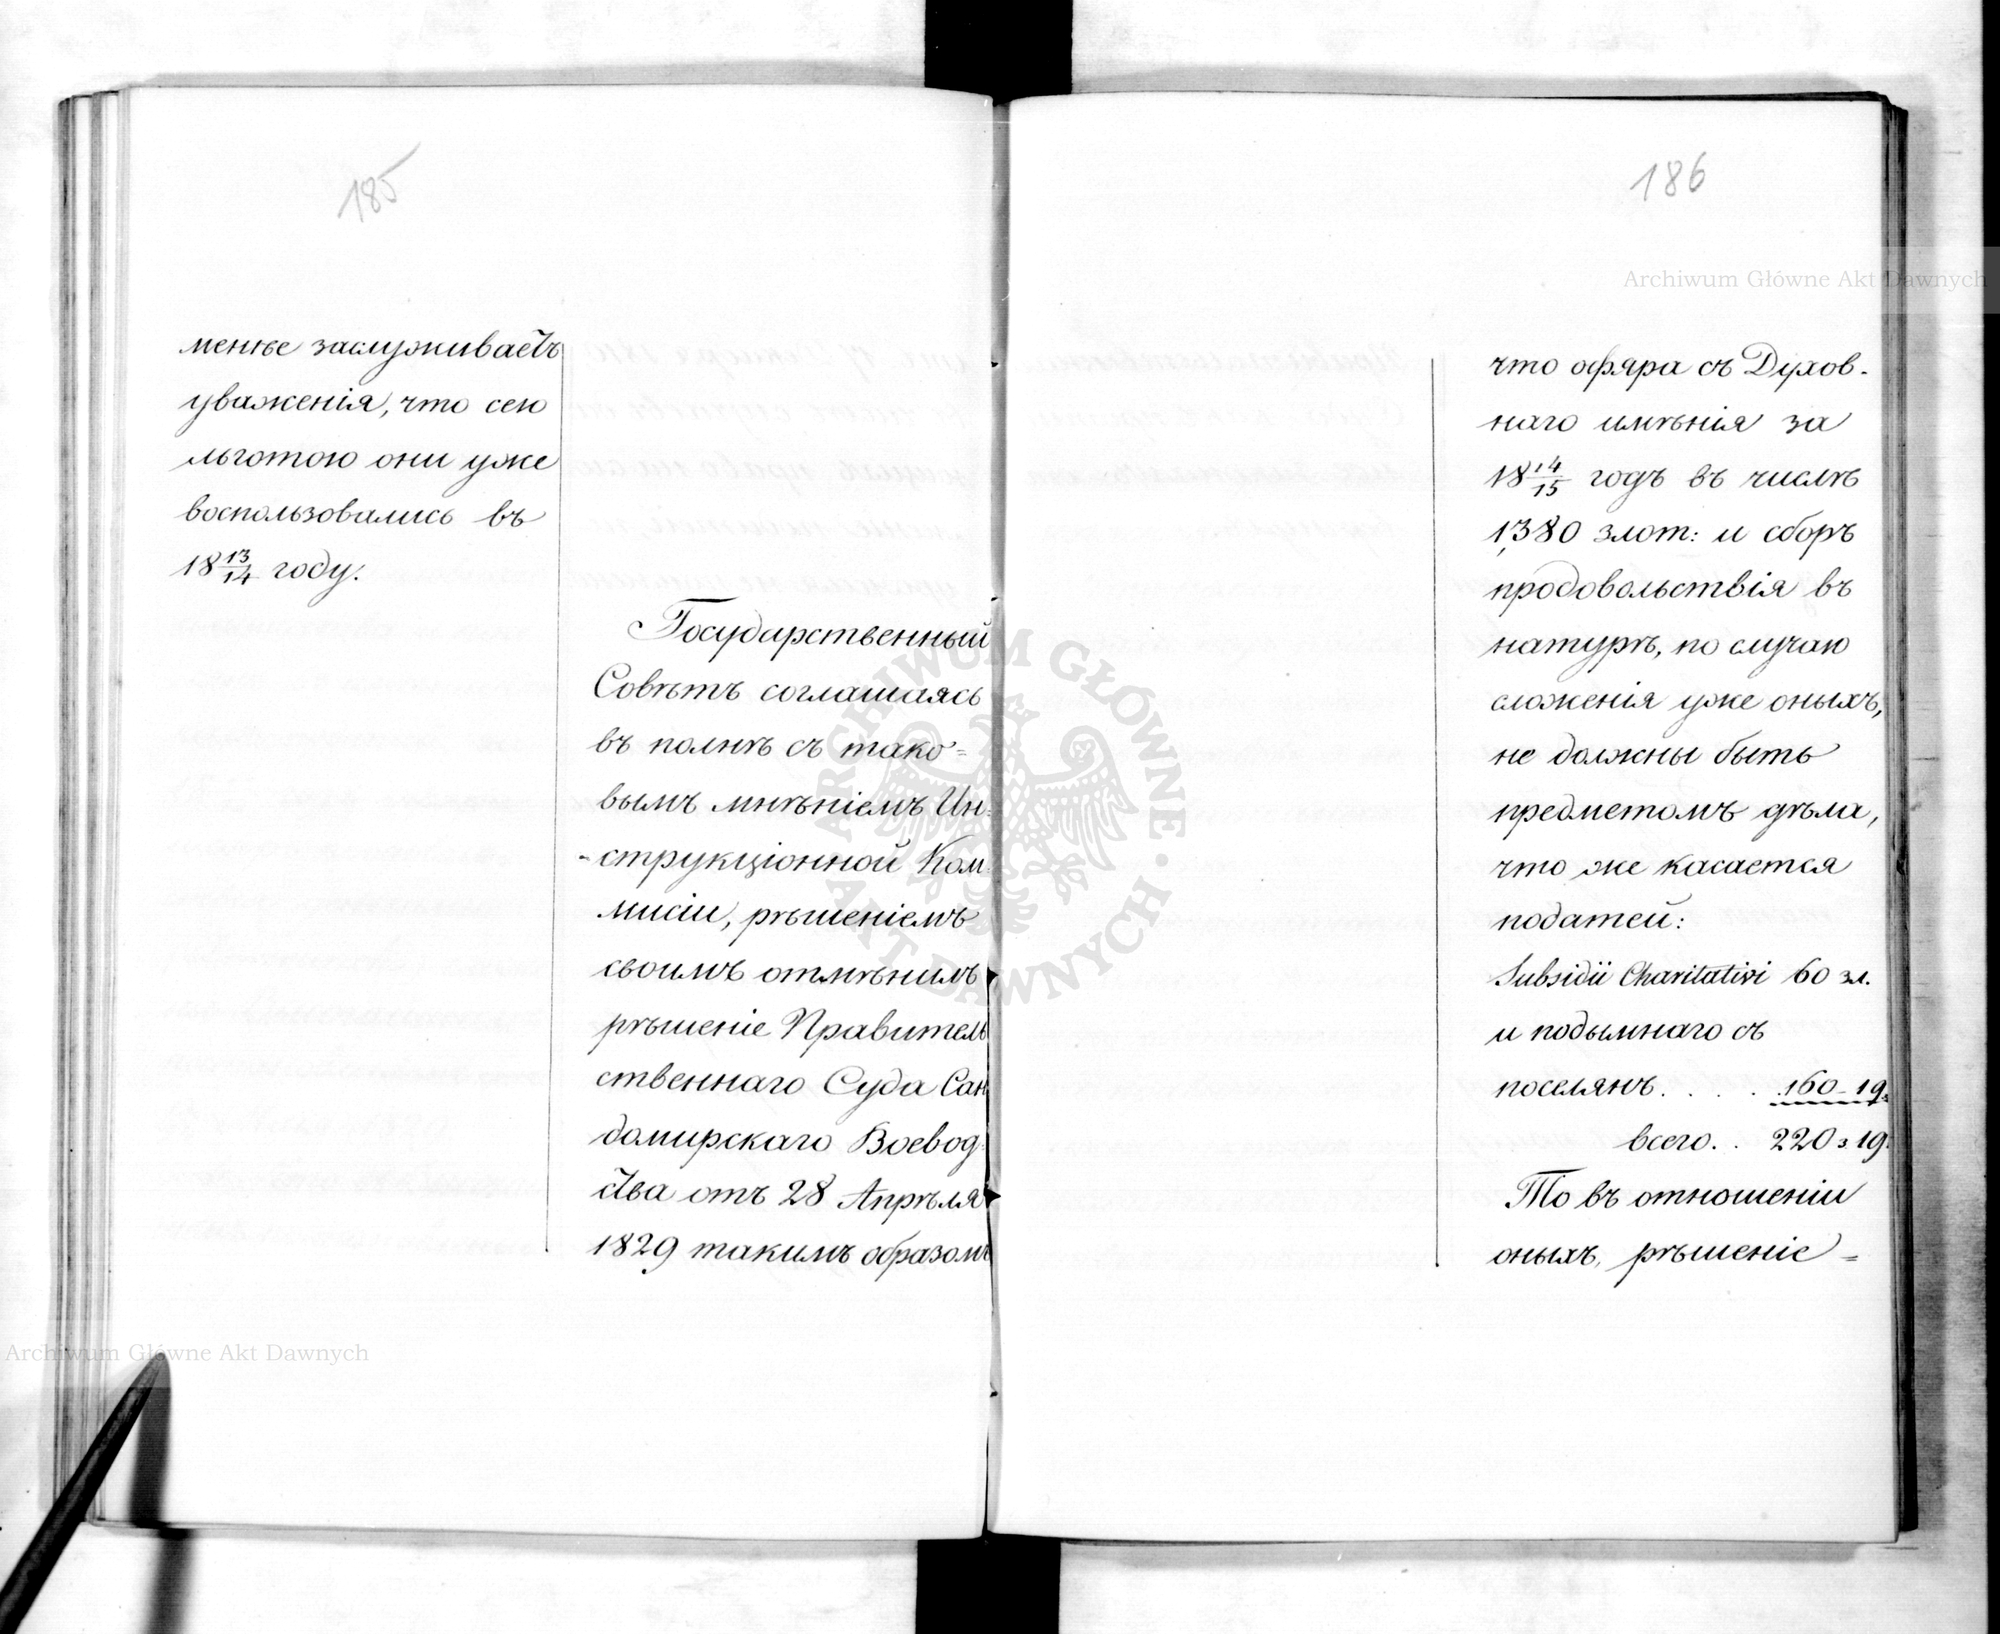 185
менѣе заслуживаетъ
уваженія, что сею
льготою они уже
воспользовались въ
18 13/14 году.
Государственный
Совѣтъ соглашаясь
въ полнѣ съ тако=
вымъ мнѣніемъ Ин-
-струкціонной Ком-
мисіи, рѣшеніемъ
своимъ отмѣнилъ
рѣшеніе Правитель
ственнаго Суда Сан
домирскаго Воевод-
ства отъ 28 Апрѣля
1829 такимъ образомъ
186
что офяра съ Духов-
наго имѣнія за
18 14/15 годъ въ числѣ
1,380 злот: и сборъ
продовольствія въ
натурѣ, по случаю
сложенія уже оныхъ,
не должны быть
предметомъ дѣла,
что же касается
податей:
Subsidii Charitativi 60 зл.
и подымнаго съ
поселянъ. . . . 160-19
всего. . 220 з 19
То въ отношеніи
оныхъ, рѣшеніе=
Archiwum Główne Akt Dawnych
Archiwum Główne Akt Dawnych
ARCHIWUM GŁÓWNE · AKT DAWNYCH ·